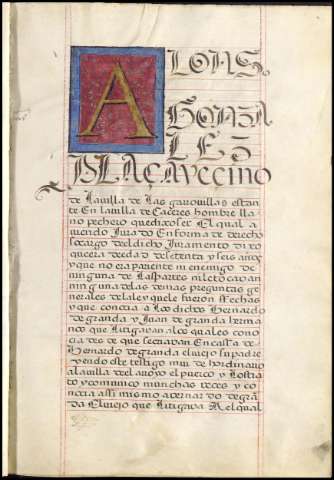 ALONS
A GONÇA
LES D
PLAÇA Vecino
de la villa de las garrovillas estan
te En la villa de Caçeres hombre lla
no pechero que dixo ser El qual a
viendo jurado En forma de derecho
so cargo del dicho juramento dixo
que era de edad de setenta y seis años
y que no era pariente ni enemigo de
ninguna de las partes ni le tocavan
ninguna de las demas preguntas ge
nerales de la ley que le fueron fechas
y que conoçia a los dichos bernardo
de granda y Juan de granda herma
nos que litigavan a los quales cono
çia desde que se criavan En casa de
bernardo de granda el viejo su padre
yendo este testigo muy de hordinario
a la villa del arroyo el puerco y los trato
y comunico munchas veces y co
noçia assi mismo a bernardo de gran
da El viejo que litigava Al qual